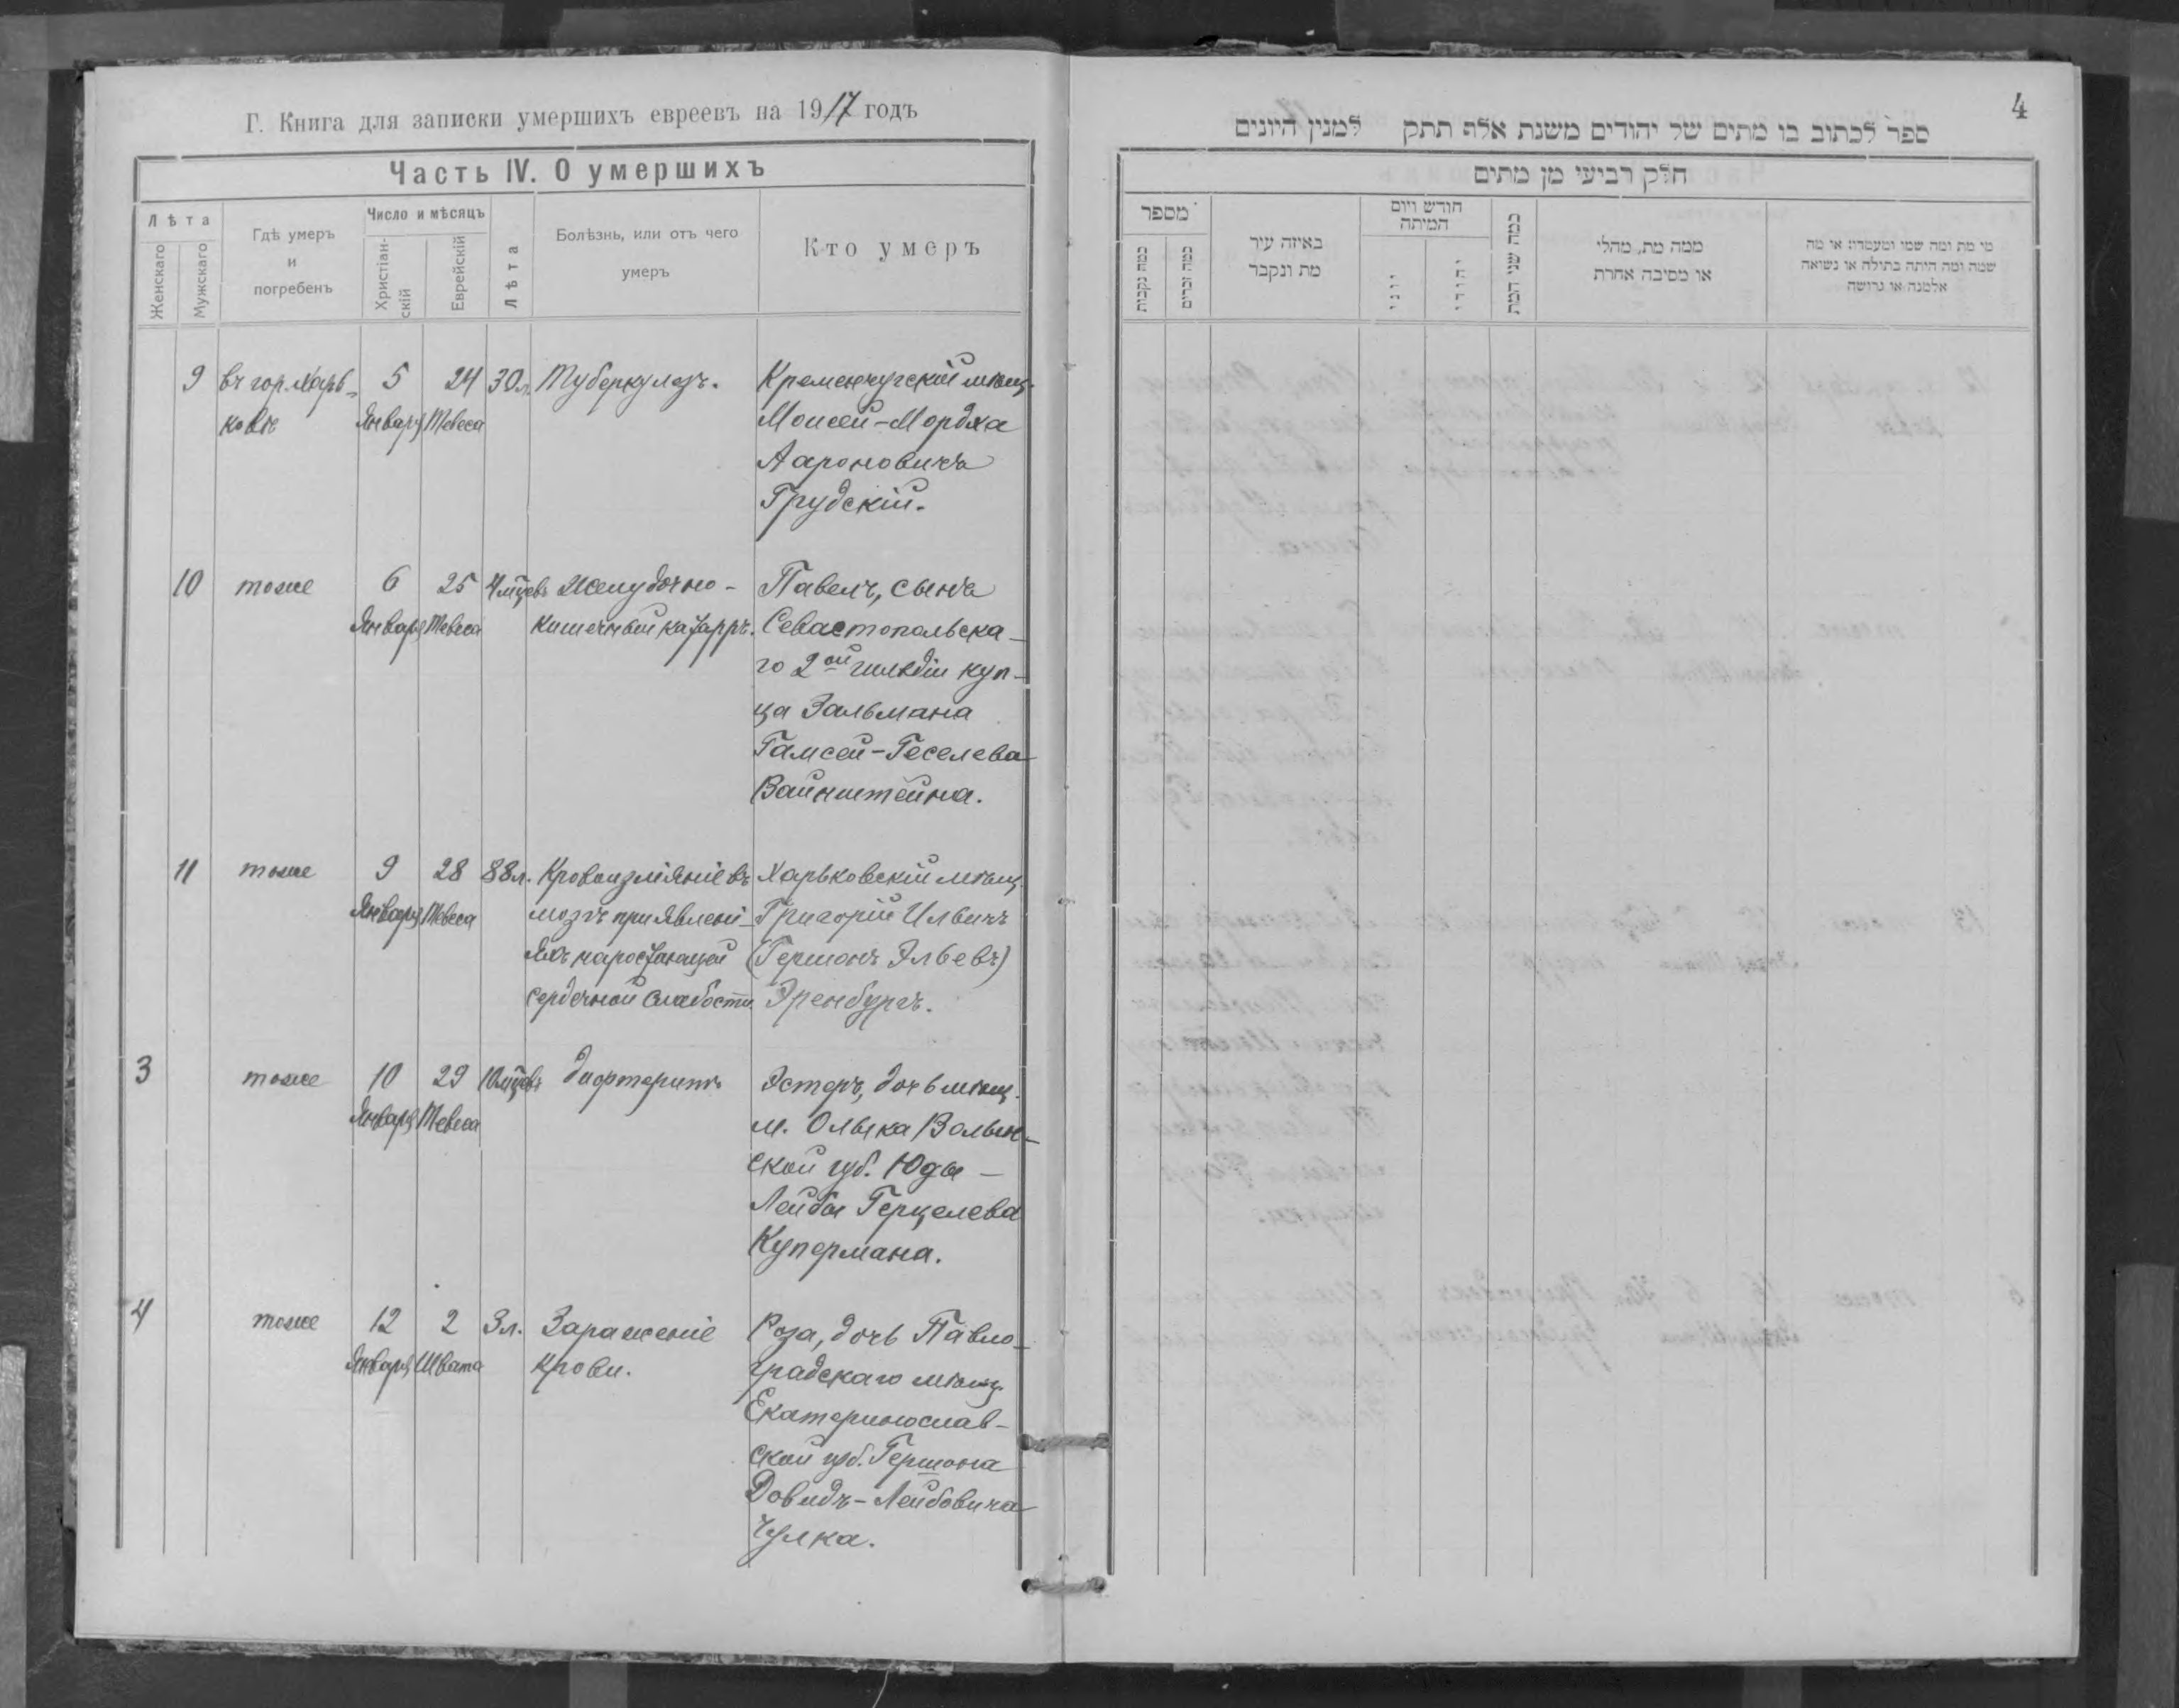 Г. Книга для записки умершихъ евреевъ на 1917 годъ
Часть IV. О умершихъ
Лѣта
Женскаго
Мужскаго
Гдѣ умеръ
и
погребенъ
Число и мѣсяцъ
Христіан-
скій
Еврейскій
Лѣта
Болѣзнь, или отъ чего
умеръ
Кто умеръ
9 въ гор. Харь- 5 24 30 л. Туберкулезъ. Кременчугскій мѣщ.
ковѣ Января Тевеса Моисей-Мордха
Аароновичъ
Грудскій.
10 тоже 6 25 4 мѣсяцевъ Желудочно- Павелъ, сынъ
Января Тевеса кишечный катарръ. Севастопольска-
го 2ой гильдіи куп-
ца Зальмана
Гамсей-Геселева
Вайнштейна.
11 тоже 9 28 88 л. Кровоизліяніе въ Харьковскій мѣщ.
Января Тевеса мозгъ при явлені- Григорій Ильичъ
яхъ наростающей (Гершонъ Эльевъ)
сердечной слабости Эренбургъ.
3 тоже 10 29 10 мѣсяцевъ Дифтеритъ Эстеръ, дочь мѣщ.
Января Тевеса м. Олыка Волын-
ской губ. Юды-
Лейбы Герцелева
Купермана.
4 тоже 12 2 3 л. Зараженіе Роза, дочь Павло-
Января Швата крови. градскаго мѣщ.
Екатеринослав-
ской губ. Гершона
Довидъ-Лейбовича
Чулка.
4
ספר לכתוב בו מתים של יהודים משנת אלף תתק למנין היונים
חלק רביעי מן מתים
מספר
כמה נקבות
כמה זכרים
באיזה עיר
מת ונקבר
חודש ויום
המיתה
יוני
יהודי
כמה שני המת
ממה מת, מחלי
או מסיבה אחרת
מי מת ומה שמו ומעמדו או מה
שמה ומה היתה בתולה או נשואה
אלמנה או גרושה